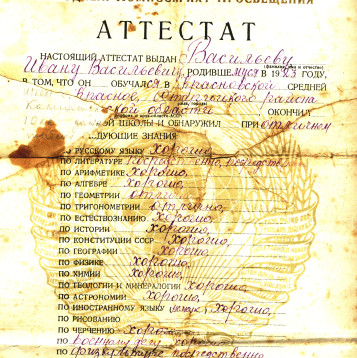 АТТЕСТАТ
НАСТОЯЩИЙ АТТЕСТАТ ВЫДАН Васильеву
(фамилия, имя и отчество)
Ивану Васильевичу, РОДИВШЕМУСЯ В 1923 ГОДУ,
В ТОМ, ЧТО ОН ОБУЧАЛСЯ В Красновской СРЕДНЕЙ
района
области, ОКОНЧИЛ
ШКОЛЫ И ОБНАРУЖИЛ ПРИ отличном
...ДУЮЩИЕ ЗНАНИЯ
РУССКОМУ ЯЗЫКУ хорошо,
ПО ЛИТЕРАТУРЕ посредственно,
ПО АРИФМЕТИКЕ хорошо,
ПО АЛГЕБРЕ хорошо,
ПО ГЕОМЕТРИИ отлично,
ПО ТРИГОНОМЕТРИИ отлично,
ПО ЕСТЕСТВОЗНАНИЮ хорошо,
ПО ИСТОРИИ хорошо,
ПО КОНСТИТУЦИИ СССР хорошо,
ПО ГЕОГРАФИИ хорошо,
ПО ФИЗИКЕ хорошо,
ПО ХИМИИ хорошо,
ПО ГЕОЛОГИИ И МИНЕРАЛОГИИ хорошо,
ПО АСТРОНОМИИ хорошо,
ПО ИНОСТРАННОМУ ЯЗЫКУ хорошо,
ПО РИСОВАНИЮ
ПО ЧЕРЧЕНИЮ хорошо,
ПО военному делу хорошо
ПО физкультуре посредственно